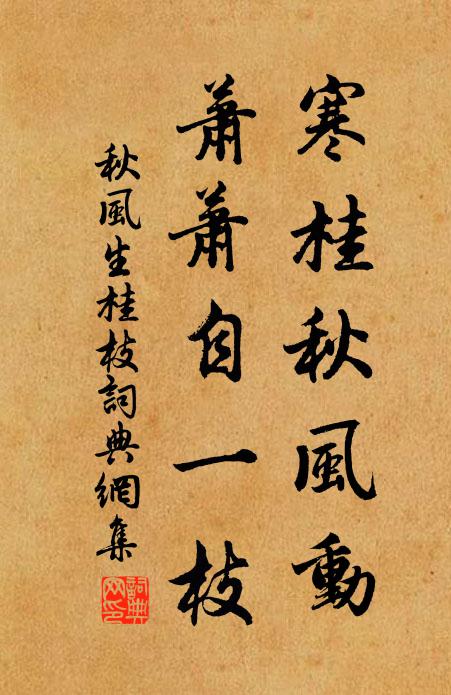 寒桂秋風動
蕭蕭自一枝
秋風生桂枝詞典網集
詞典
网印